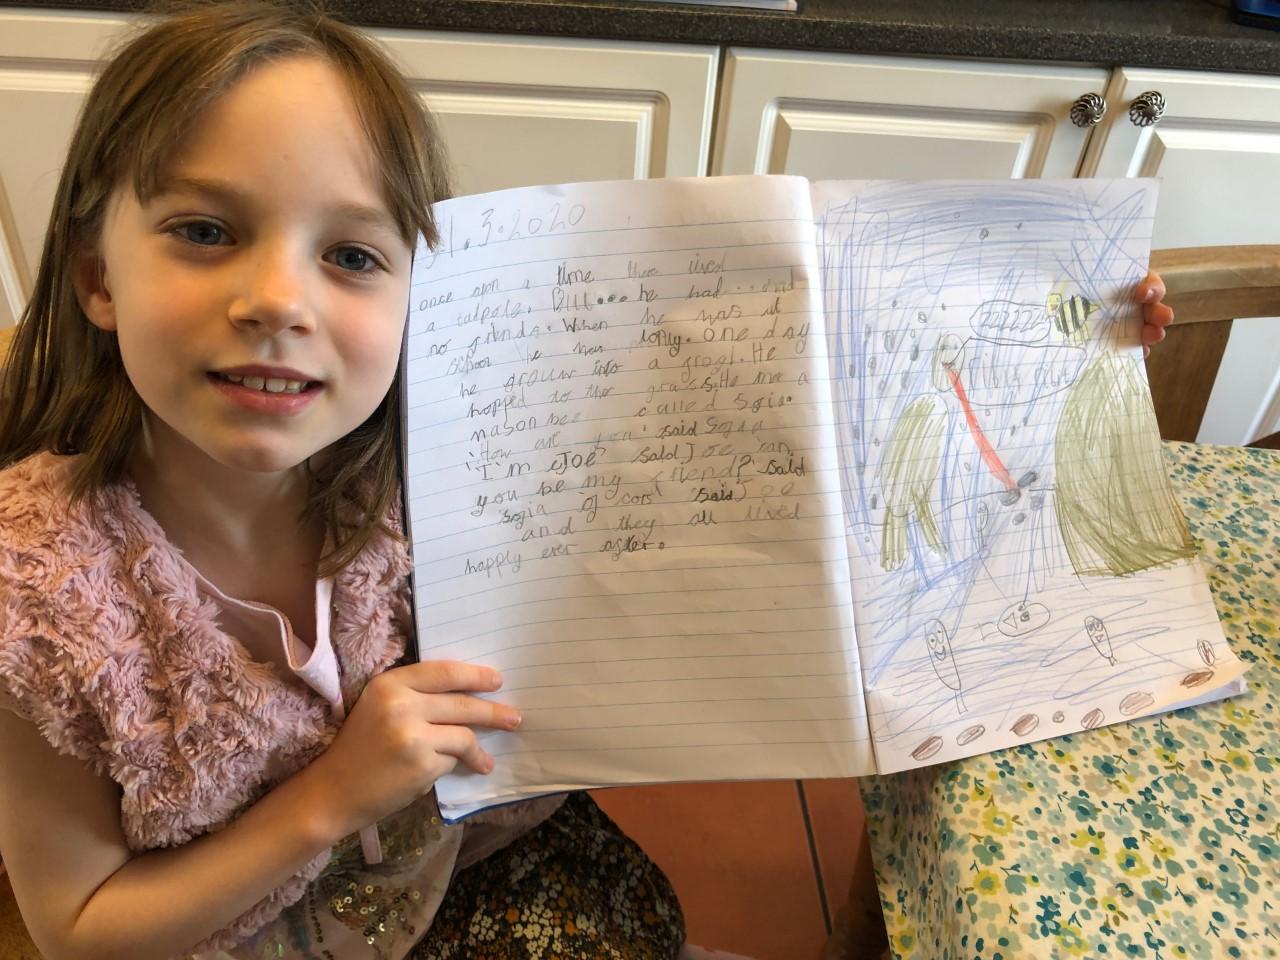 1.3.2020
once upon a time ther lived
a tadpole. BUt... he had ... had
no friends. When he was at
school he was lonly. one day
he groun into a frog! He
hopped to the grass. He met a
mason bee called Sofia.
'How are you' said Sofia
'I'm Joe' said Joe 'can
you be my friend?' said
sofia of cors 'said' Joe
and they all lived
happly ever after.
ZZZZZZ
Ribit